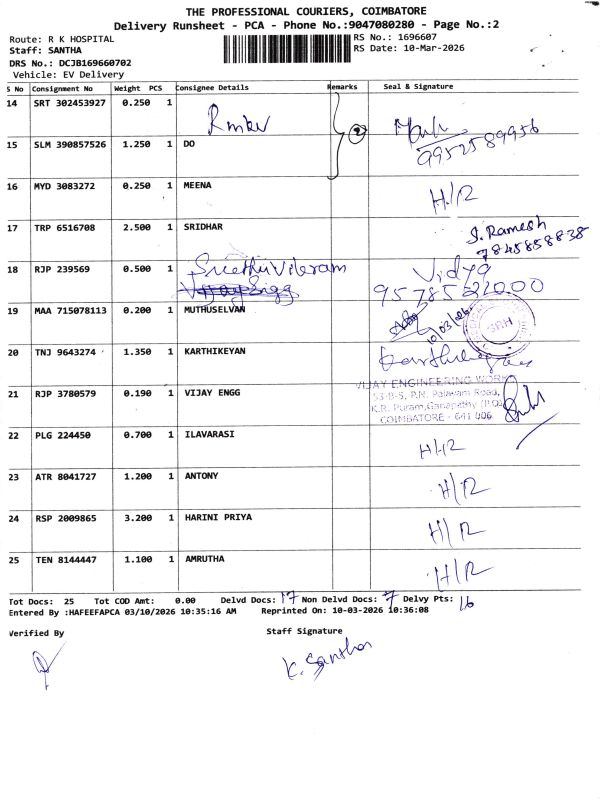 THE PROFESSIONAL COURIERS, COIMBATORE
Delivery Runsheet - PCA - Phone No.:9047080280 - Page No.:2
Route: R K HOSPITAL
RS No.: 1696607
Staff: SANTHA
RS Date: 10-Mar-2026
DRS No.: DCJB169660702
Vehicle: EV Delivery
S No Consignment No Weight PCS Consignee Details Remarks Seal & Signature
14 SRT 302453927 0.250 1
2
9952589956
15 SLM 390857526 1.250 1 DO
16 MYD 3083272 0.250 1 MEENA H/R
17 TRP 6516708 2.500 1 SRIDHAR S. Ramesh
7845858838
18 RJP 239569 0.500 1 Vidya
19 MAA 715078113 0.200 1 MUTHUSELVAN 10/03/26
SRH
20 TNJ 9643274 1.350 1 KARTHIKEYAN
21 RJP 3780579 0.190 1 VIJAY ENGG
VIJAY ENGINEERING WORK
53-B-5, P.N. Palayam Road,
K.R. Puram, Ganapathy (P.O)
COIMBATORE - 641 006
22 PLG 224450 0.700 1 ILAVARASI H/R
23 ATR 8041727 1.200 1 ANTONY H/R
24 RSP 2009865 3.200 1 HARINI PRIYA H/R
25 TEN 8144447 1.100 1 AMRUTHA H/R
Tot Docs: 25 Tot COD Amt: 0.00 Delvd Docs: 17 Non Delvd Docs: 7 Delvy Pts: 16
Entered By :HAFEEFAPCA 03/10/2026 10:35:16 AM Reprinted On: 10-03-2026 10:36:08
Verified By Staff Signature
K. Santha